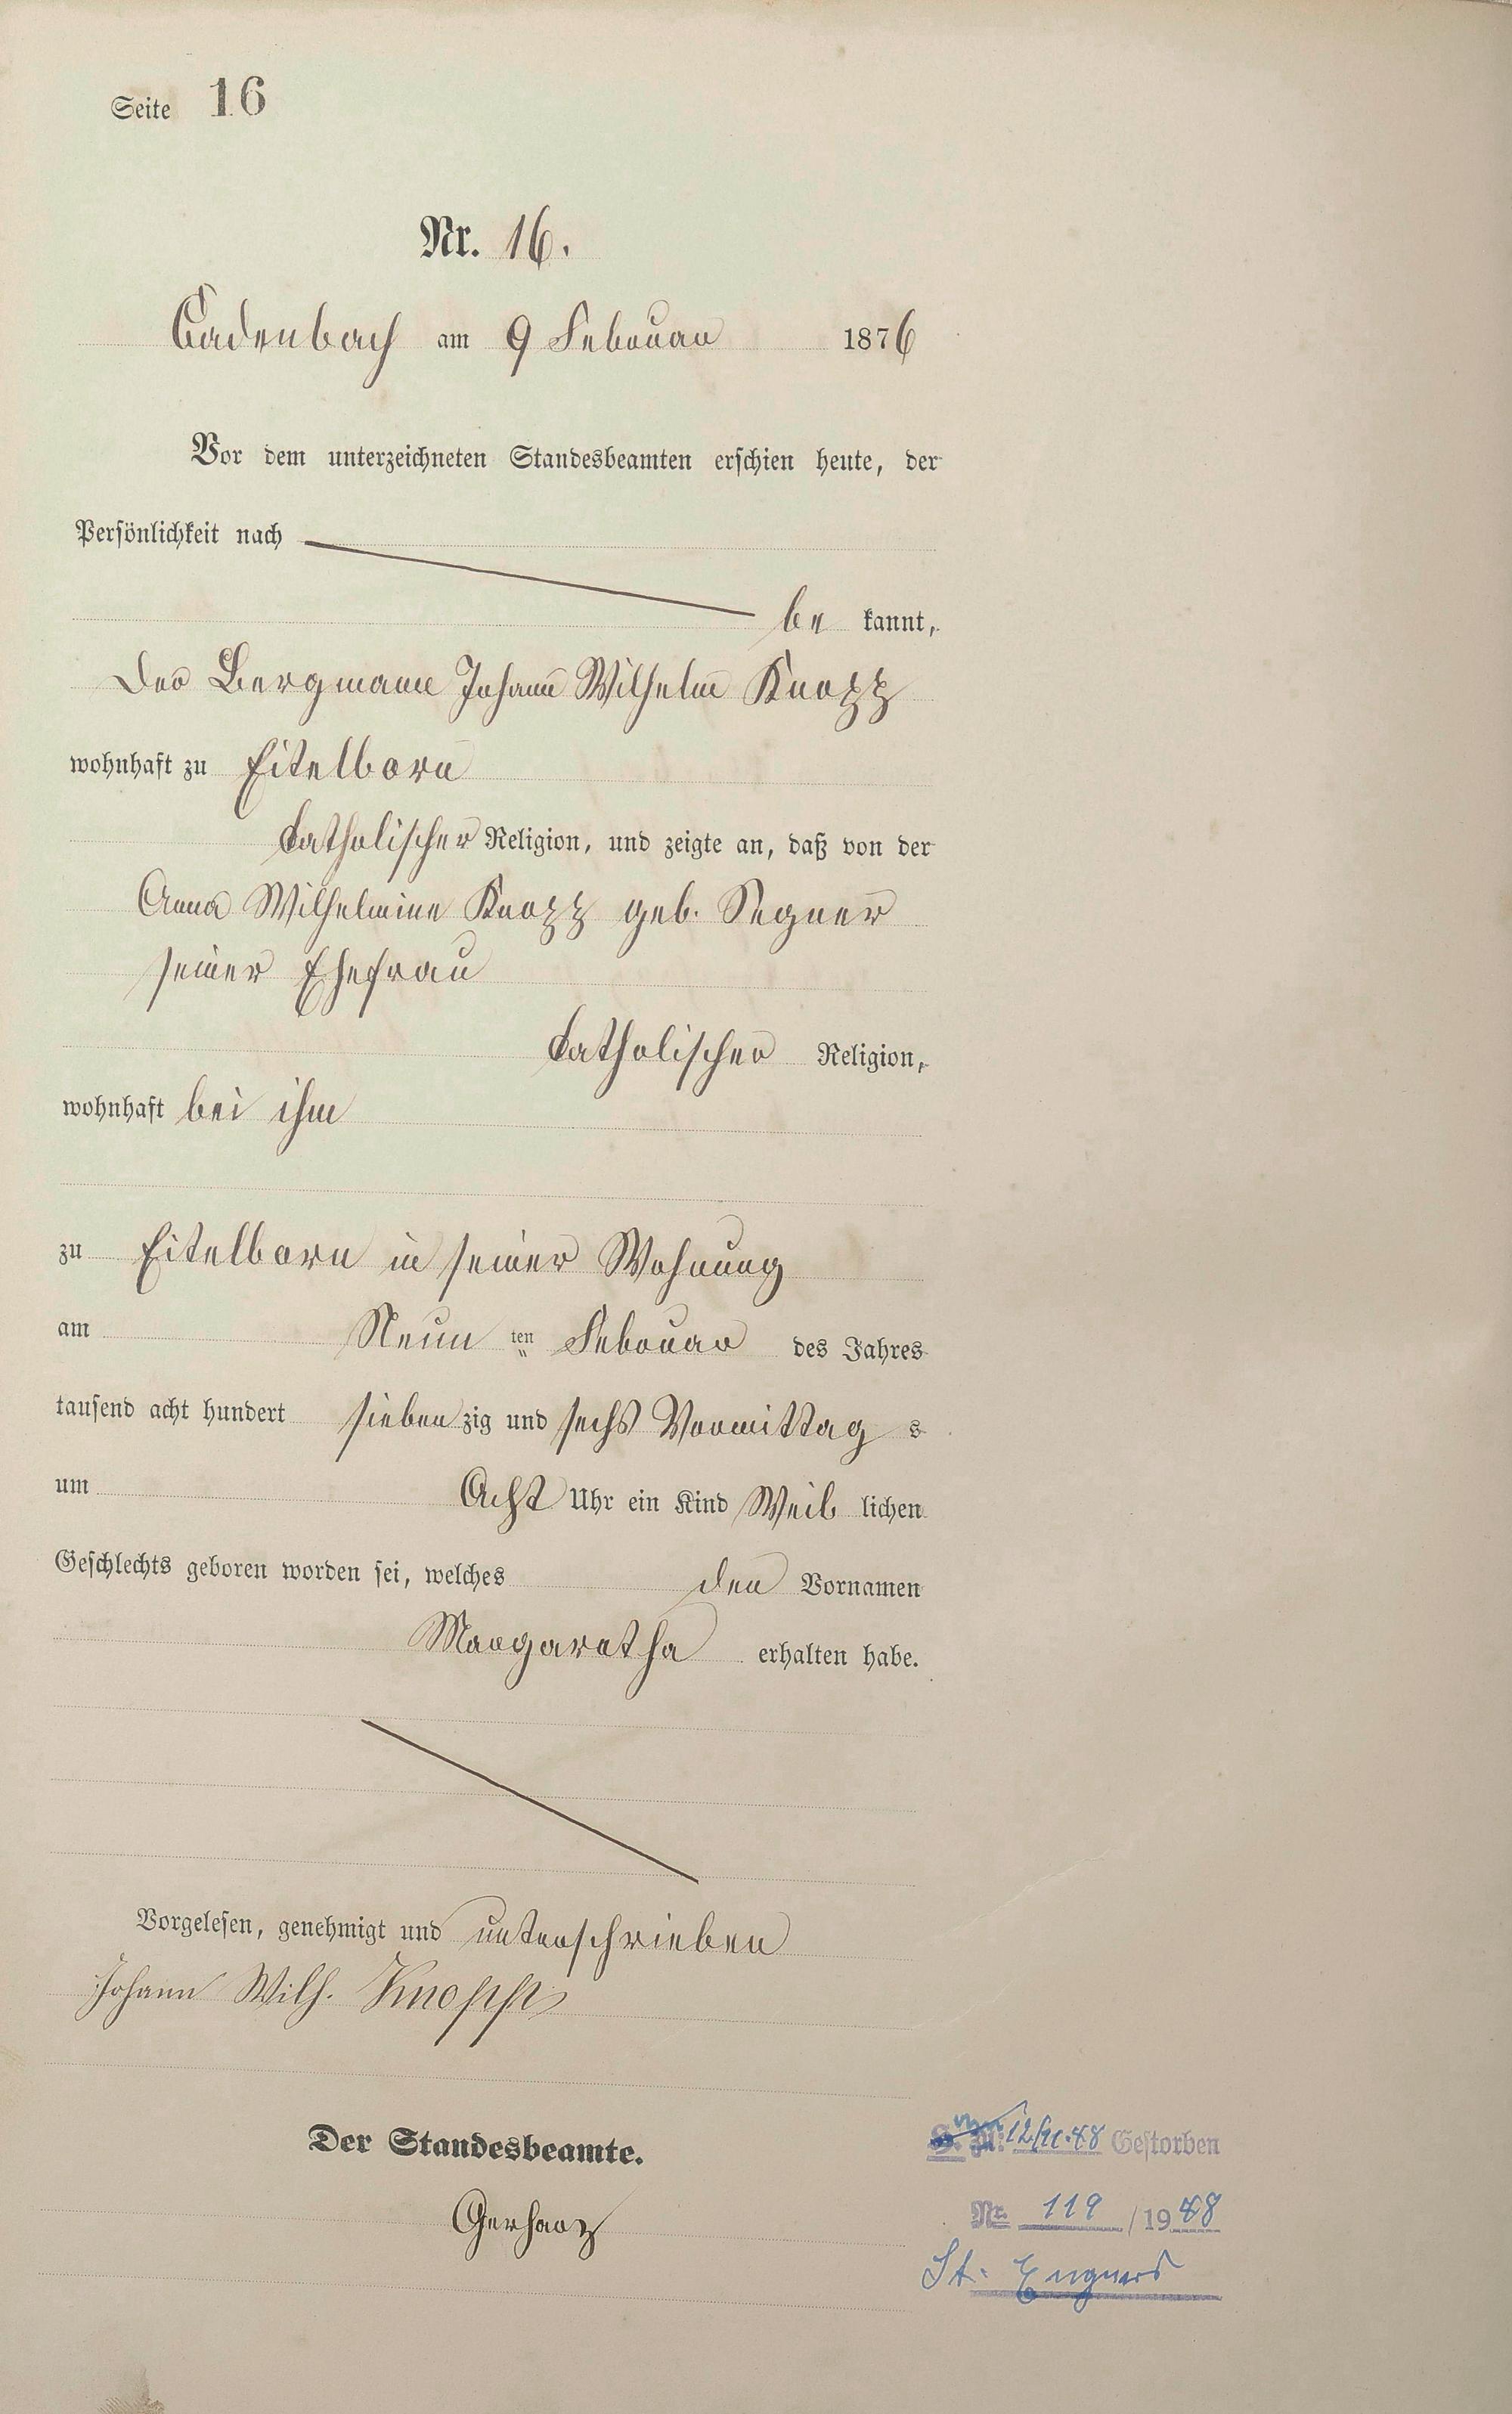 Seite 16
Nr. 16.
Cadenbach am 9 Februar 1876
Vor dem unterzeichneten Standesbeamten erschien heute, der
Persönlichkeit nach
be kannt,
der Bergmann Johann Wilhelm Knopp
wohnhaft zu Eitelborn
katholischer Religion, und zeigte an, daß von der
Anna Wilhelmine Knopp geb. Segner
seiner Ehefrau
katholischer Religion,
wohnhaft bei ihm
zu Eitelborn in seiner Wohnung
am Neun ten Februar des Jahres
tausend acht hundert sieben zig und sechs Vormittag s
um Acht Uhr ein Kind Weib lichen
Geschlechts geboren worden sei, welches den Vornamen
Margaretha erhalten habe.
Vorgelesen, genehmigt und unterschrieben
Johann Wilh. Knopp
Der Standesbeamte.
Gerharz
Gestorben
Nr. 119 / 1948
St. Engers